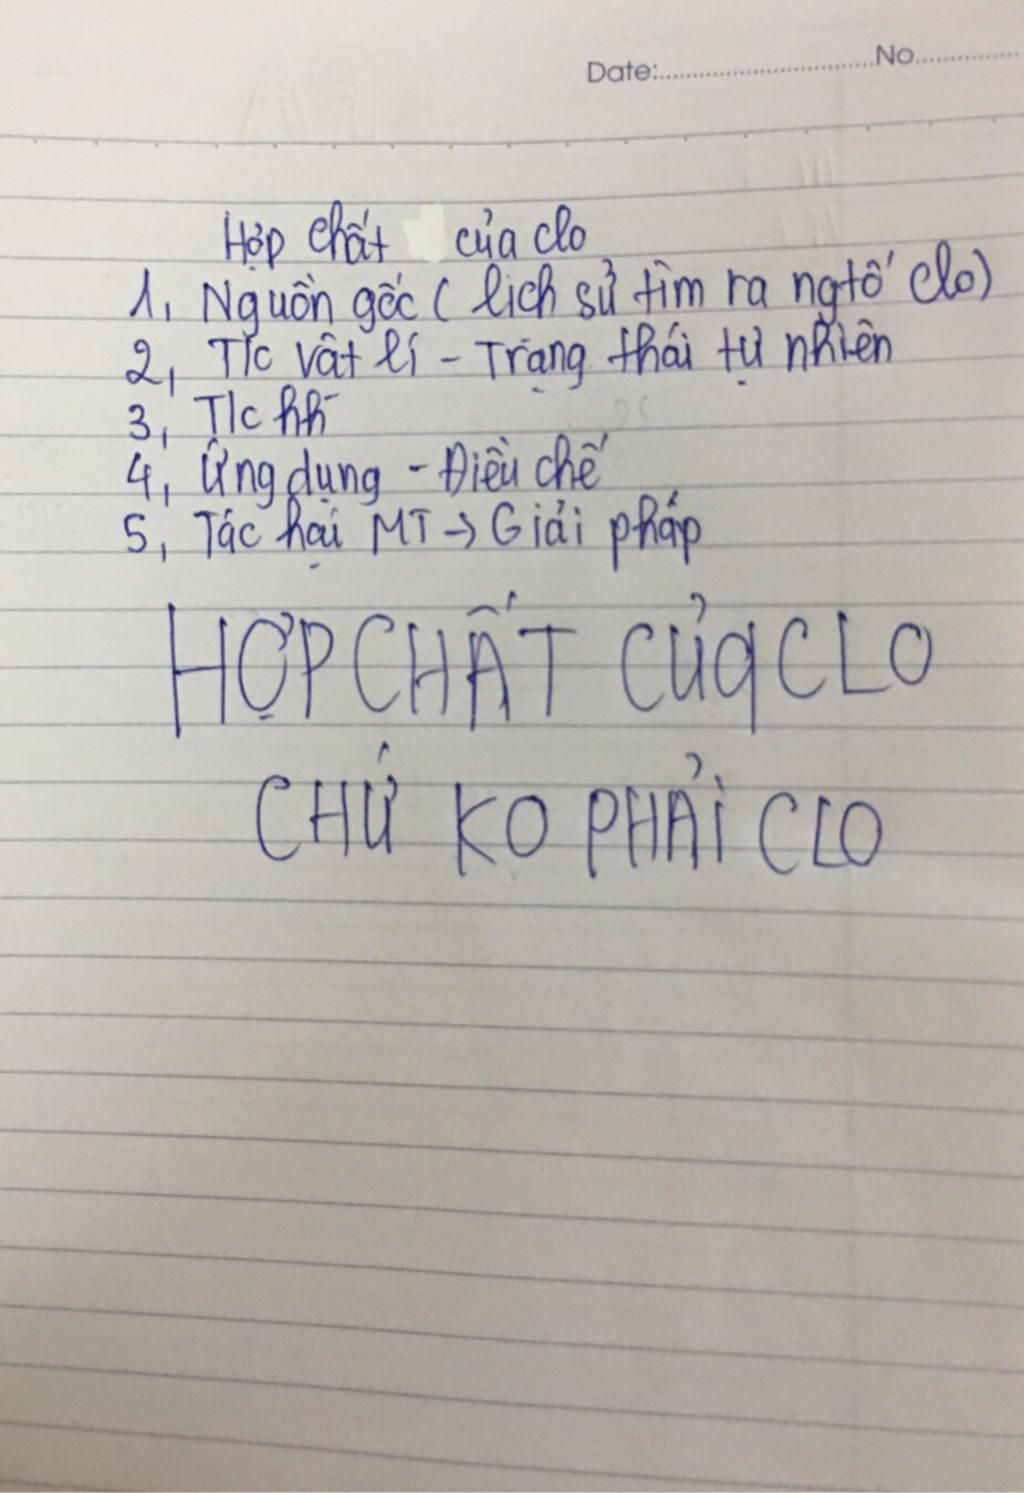 Date:..............................No...............
Hợp chất của clo
1, Nguồn gốc ( lịch sử tìm ra ngtố clo)
2, T/c vật lí - Trạng thái tự nhiên
3, T/c hh
4, Ứng dụng - Điều chế
5, Tác hại MT → Giải pháp
HỢP CHẤT CủA CLO
CHỨ KO PHẢI CLO